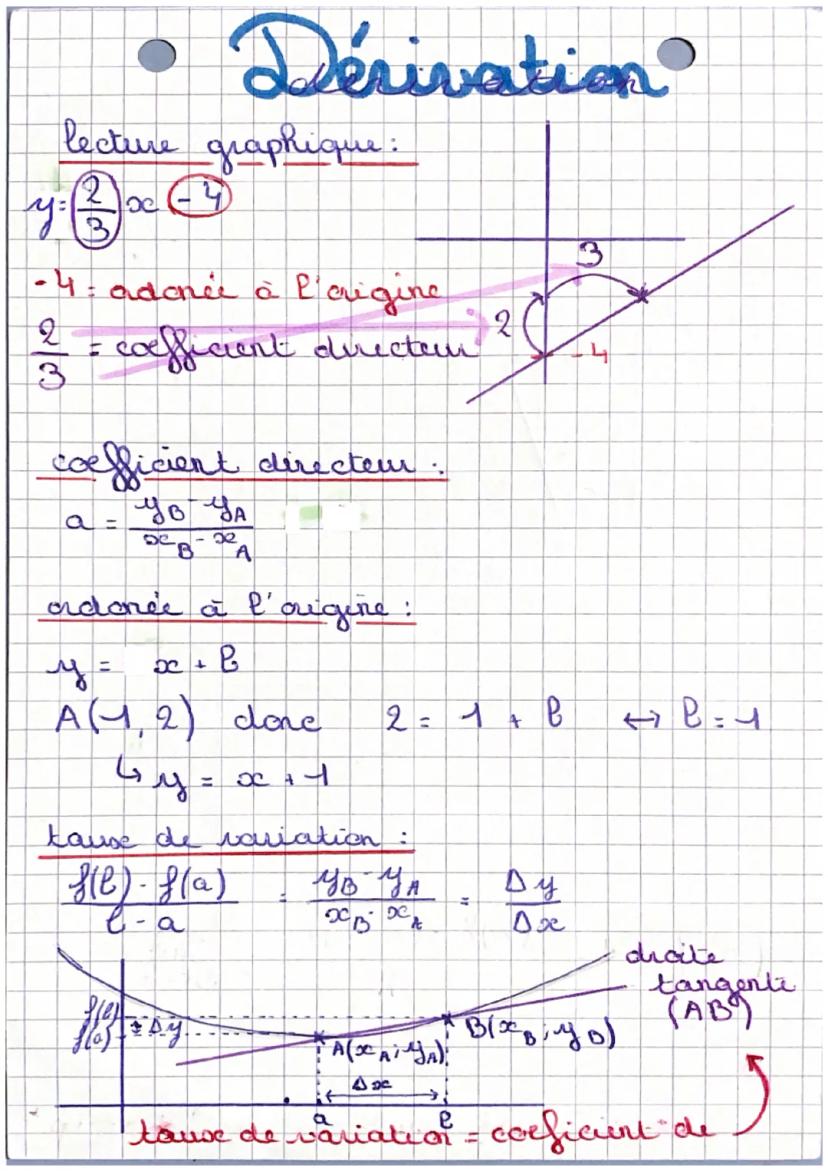 Dérivation
lecture graphique :
y = 2/3 x - 4
3
- 4 = ordonée à l'origine
2
2/3 = coefficient directeur
- 4
coefficient directeur :
a = (yB - yA)/(xB - xA)
ordonée à l'origine :
y = x + b
A(1, 2) donc 2 = 1 + b ↔ b = 1
↳ y = x + 1
taux de variation :
(f(b) - f(a))/(b - a) = (yB - yA)/(xB - xA) = Δy/Δx
droite
tangente
(AB)
f(b)
f(a)
Δy
A(xA ; yA)
B(xB ; yB)
Δx
a
b
taux de variation = coeficient de